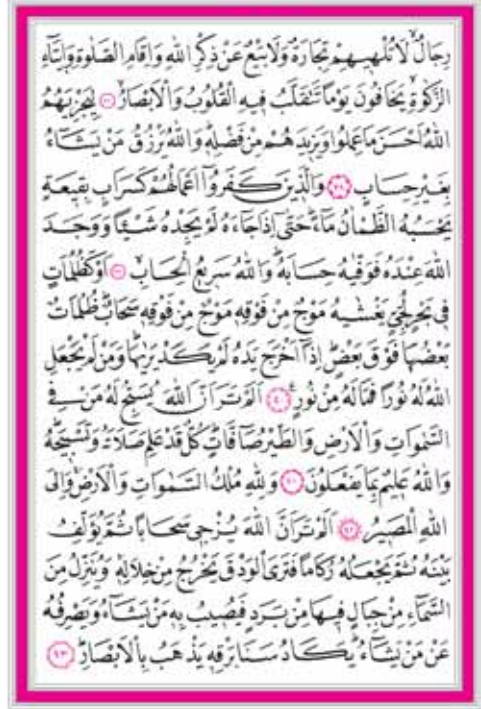 رِجَالٌ لَا تُلْهِيهِمْ تِجَارَةٌ وَلَا بَيْعٌ عَنْ ذِكْرِ اللّٰهِ وَاِقَامِ الصَّلٰوةِ وَاِيتَاءِ
الزَّكٰوةِ يَخَافُونَ يَوْمًا تَتَقَلَّبُ فِيهِ الْقُلُوبُ وَالْاَبْصَارُ ﴿٣٧﴾ لِيَجْزِيَهُمُ
اللّٰهُ اَحْسَنَ مَا عَمِلُوا وَيَزِيدَهُمْ مِنْ فَضْلِهِ وَاللّٰهُ يَرْزُقُ مَنْ يَشَاءُ
بِغَيْرِ حِسَابٍ ﴿٣٨﴾ وَالَّذِينَ كَفَرُوا اَعْمَالُهُمْ كَسَرَابٍ بِقِيعَةٍ
يَحْسَبُهُ الظَّمْاٰنُ مَاءً حَتّٰى اِذَا جَاءَهُ لَمْ يَجِدْهُ شَيْـًٔا وَوَجَدَ
اللّٰهَ عِنْدَهُ فَوَفّٰيهُ حِسَابَهُ وَاللّٰهُ سَرِيعُ الْحِسَابِ ﴿٣٩﴾ اَوْ كَظُلُمَاتٍ
فِى بَحْرٍ لُجِّىٍّ يَغْشٰيهُ مَوْجٌ مِنْ فَوْقِهِ مَوْجٌ مِنْ فَوْقِهِ سَحَابٌ ظُلُمَاتٌ
بَعْضُهَا فَوْقَ بَعْضٍ اِذَا اَخْرَجَ يَدَهُ لَمْ يَكَدْ يَرٰيهَا وَمَنْ لَمْ يَجْعَلِ
اللّٰهُ لَهُ نُورًا فَمَا لَهُ مِنْ نُورٍ ﴿٤٠﴾ اَلَمْ تَرَ اَنَّ اللّٰهَ يُسَبِّحُ لَهُ مَنْ فِى
السَّمٰوَاتِ وَالْاَرْضِ وَالطَّيْرُ صَافَّاتٍ كُلٌّ قَدْ عَلِمَ صَلَاتَهُ وَتَسْبِيحَهُ
وَاللّٰهُ عَلِيمٌ بِمَا يَفْعَلُونَ ﴿٤١﴾ وَلِلّٰهِ مُلْكُ السَّمٰوَاتِ وَالْاَرْضِ وَاِلَى
اللّٰهِ الْمَصِيرُ ﴿٤٢﴾ اَلَمْ تَرَ اَنَّ اللّٰهَ يُزْجِى سَحَابًا ثُمَّ يُؤَلِّفُ
بَيْنَهُ ثُمَّ يَجْعَلُهُ رُكَامًا فَتَرَى الْوَدْقَ يَخْرُجُ مِنْ خِلَالِهِ وَيُنَزِّلُ مِنَ
السَّمَاءِ مِنْ جِبَالٍ فِيهَا مِنْ بَرَدٍ فَيُصِيبُ بِهِ مَنْ يَشَاءُ وَيَصْرِفُهُ
عَنْ مَنْ يَشَاءُ يَكَادُ سَنَا بَرْقِهِ يَذْهَبُ بِالْاَبْصَارِ ﴿٤٣﴾